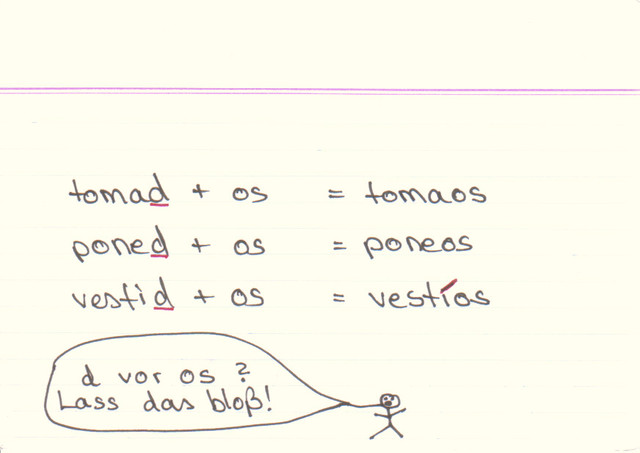 tomad + os = tomaos
poned + os = poneos
vestid + os = vestíos
d vor os ?
Lass das bloß!